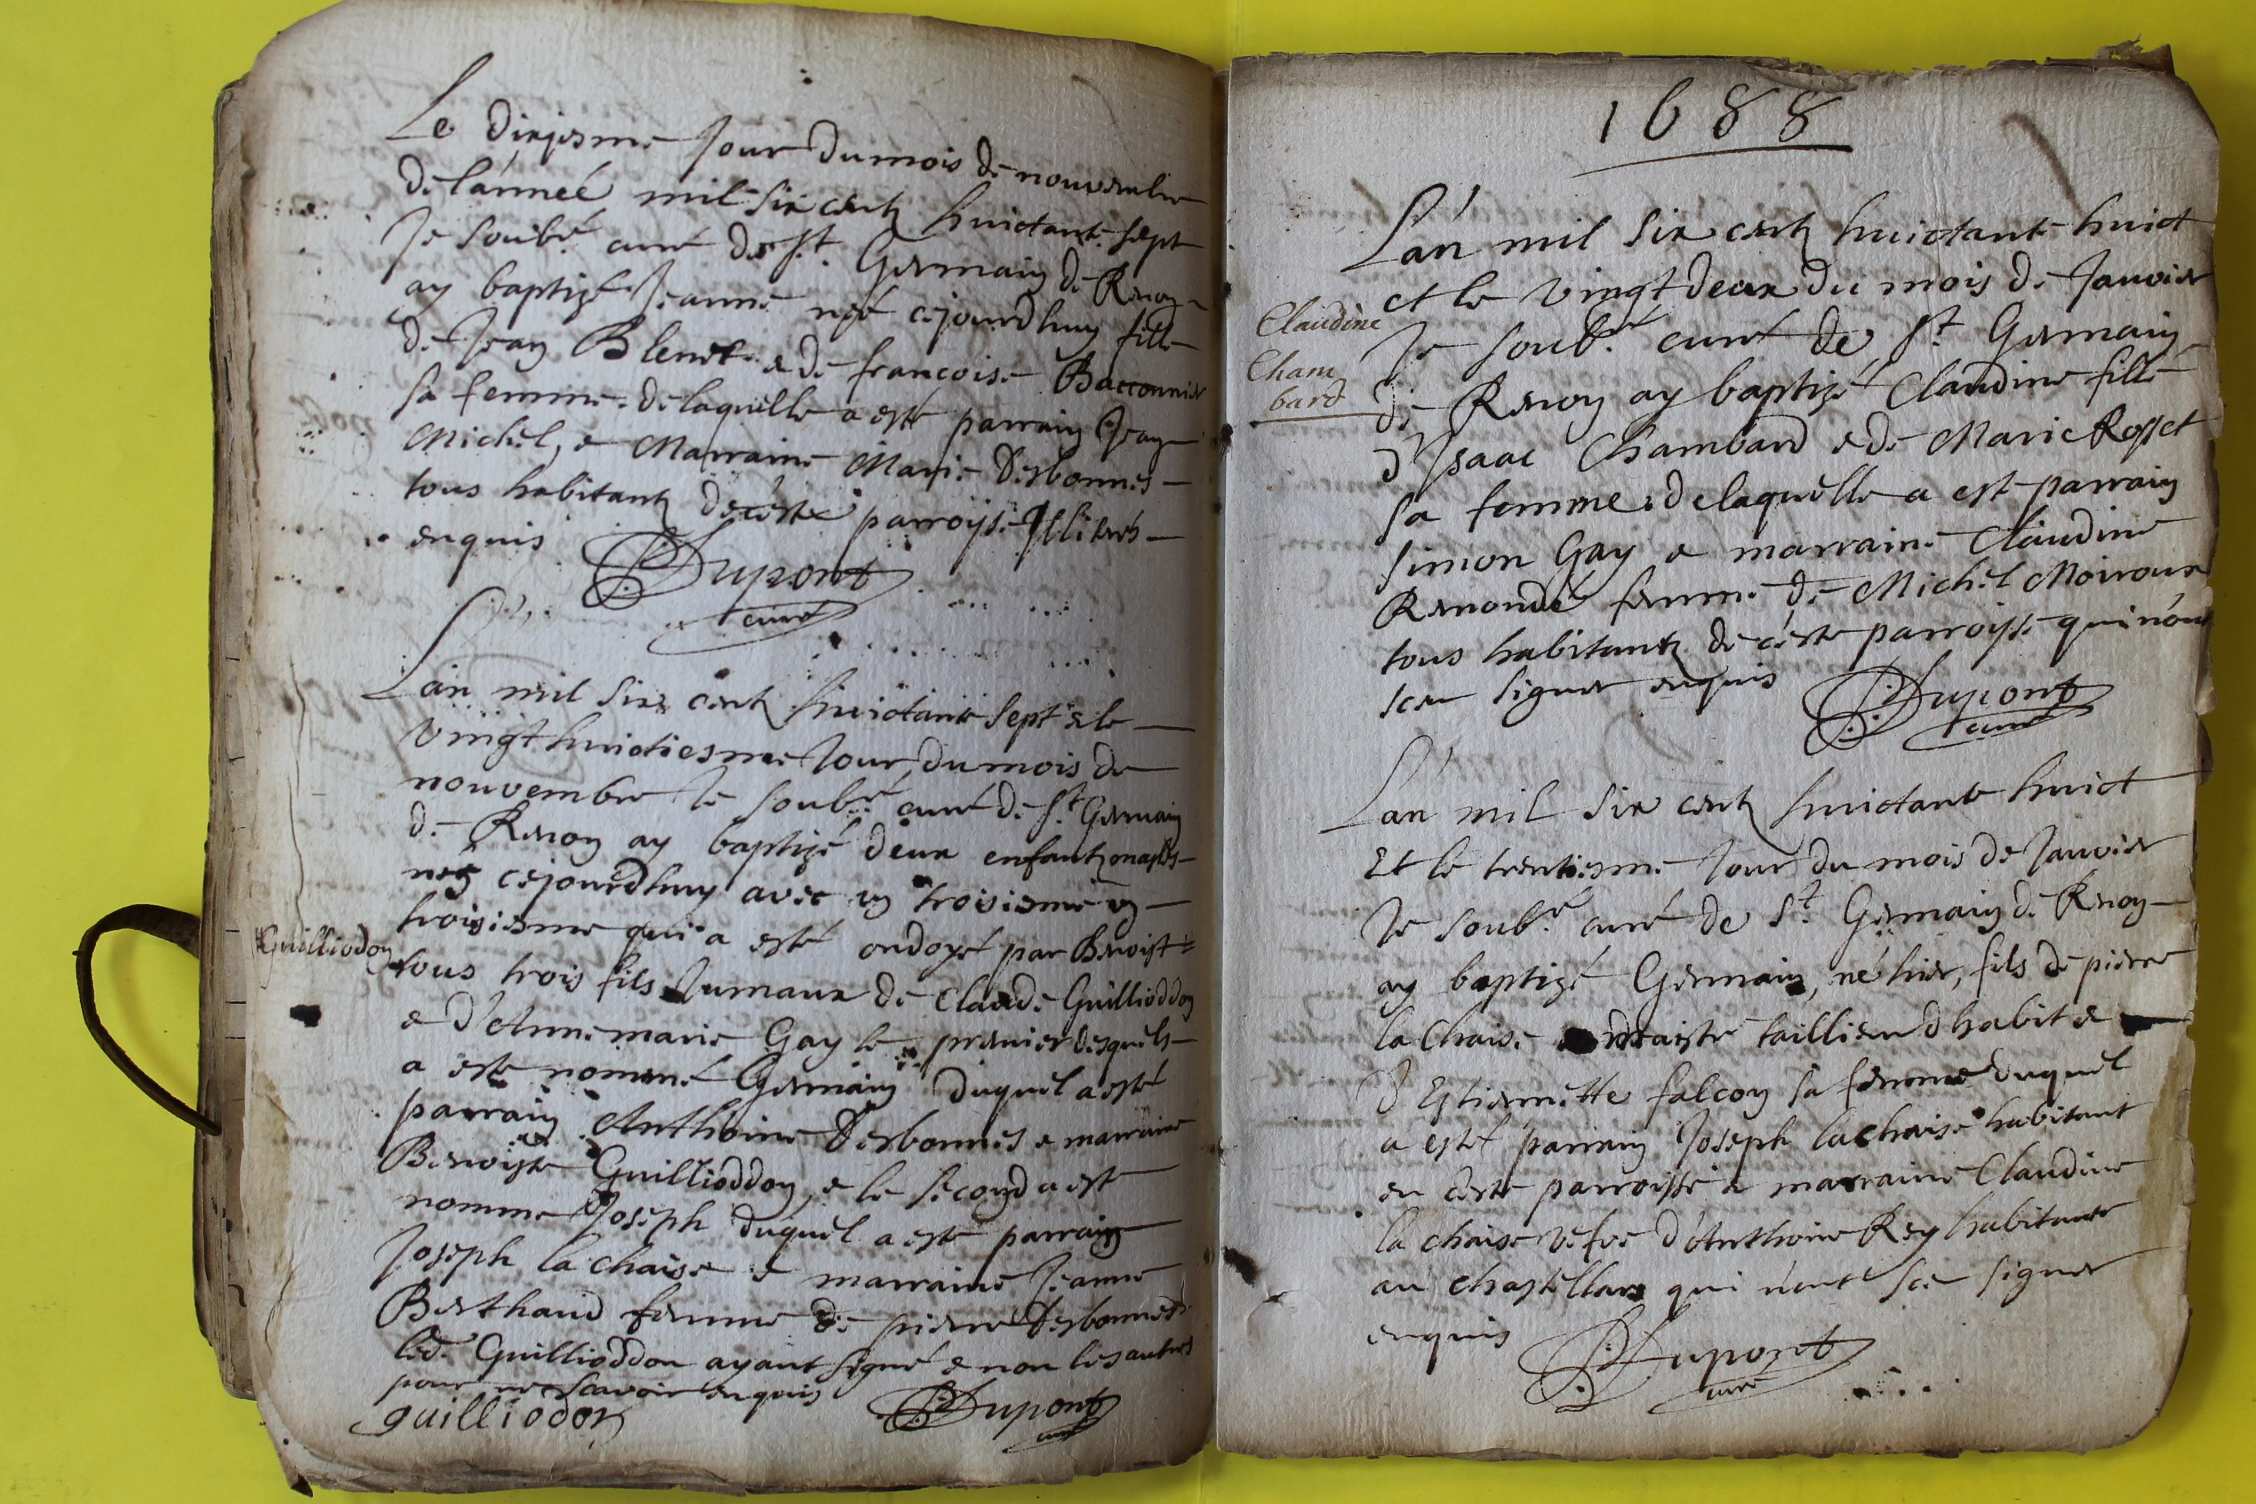 Le dixiesme Jour du mois de nouvembre
de l'anneé mil six centz huictante sept
Je soubné curé de St. Germain de Renon
ay baptizé Jeanne neé cejourdhuy fille
de Jean Blenet e de francoise Bacconnier
sa femme. de laquelle a esté parrain Jean
Michel, e Marraine Marie Desbonnes
tous habitantz de ceste parroisse Illitrés
enquis
Dupont
curé
L'an mil six centz huictante sept e le
vingt huictiesme Jour du mois de
nouvembre Je soubné curé de St Germain
de Renon ay baptizé deux enfantz masles
nes cejourdhuy avec un troisiemé un
troisiesme qui a esté ondoyé par Benoist
Guilliodon
tous trois fils Jumaux de Claude Guillioddon
e d'Anne marie Gay le premier desquels
a esté nommé Germain duquel a esté
parrain Anthoine Desbonnes e marraine
Benoiste Guillioddon, e le second a esté
nomme Joseph duquel a esté parrain
Joseph la chaise e marraine Jeanne
Berthaud femme de pierre Desbonnes
led. Guillioddon ayant signé e non les autres
pour ne scavoir enquis
guilliodon
Dupont
curé
1688
L'an mil six centz huictante huict
et le vingt deux du mois de Janvier
Claudine
Cham
bard
Je soubné curé de St Germain
de Renon ay baptizé Claudine fille
d'Isaac Chambard e de Marie Rosset
sa femme. de laquelle a esté parrain
Simon Gay e marraine Claudine
Remondé femme de Michel Moiroux
tous habitantz de ceste parroisse qui n'ont
sceu signer enquis
Dupont
curé
L'an mil six centz huictante huict
Et le trentiesme Jour du mois de Janvier
Je soubné curé de St Germain de Renon
ay baptizé Germain, né hier, fils de pierre
la Chaise maistre taillieur d'habit e
d'Estiennette falcon sa femme duquel
a esté parrain Joseph la chaise habitant
en ceste parroisse e marraine Claudine
la chaise vefve d'Anthoine Rey habitante
au chastellard qui n'ont sceu signer
enquis
Dupont
curé